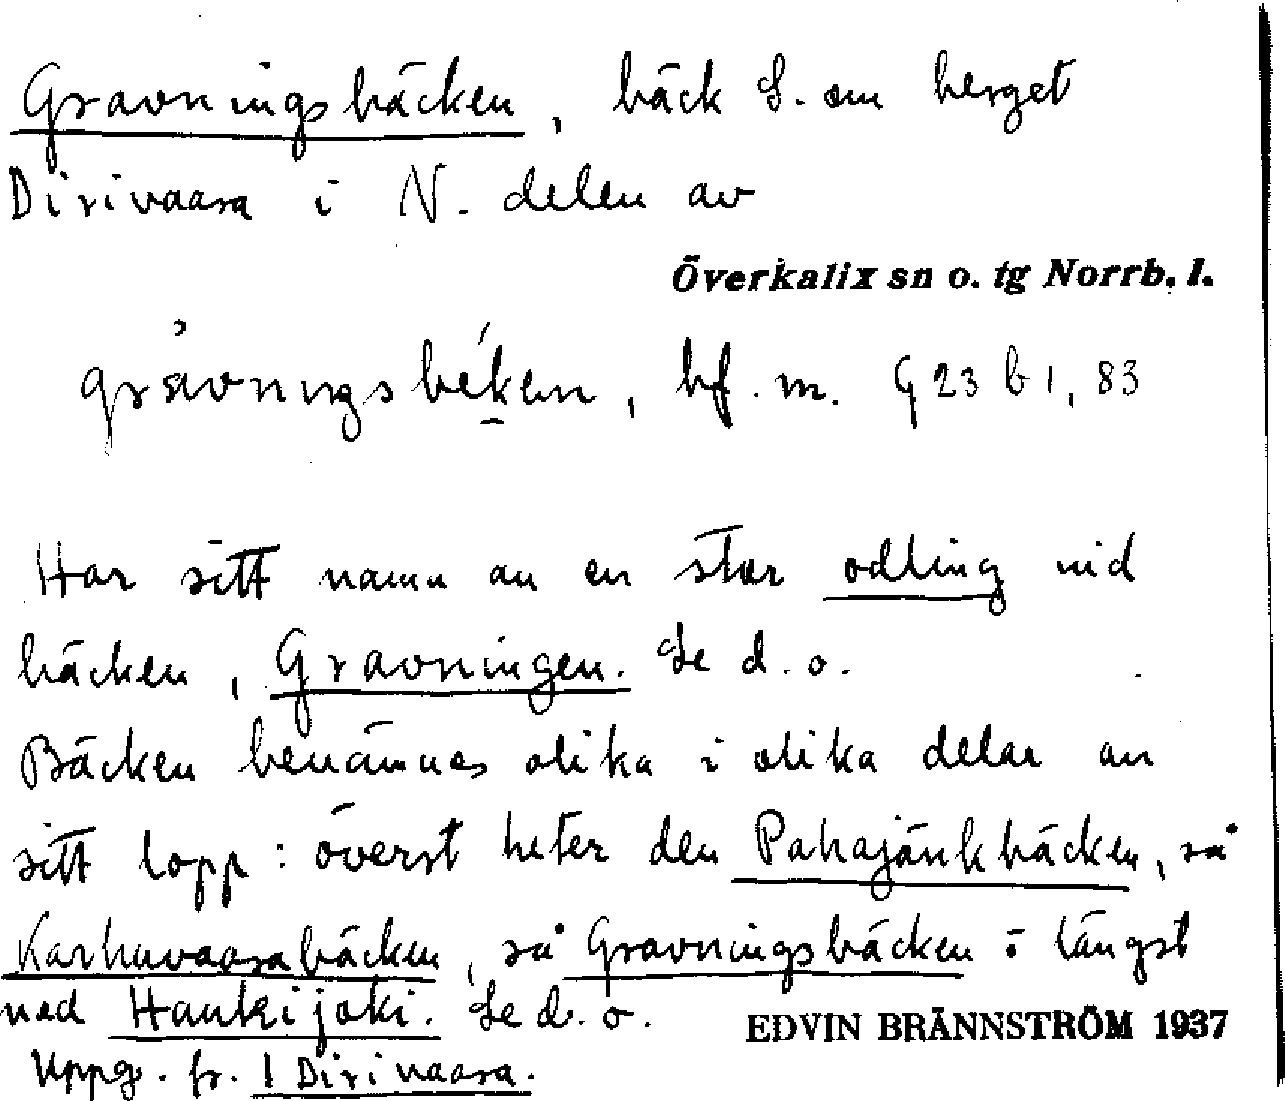 Gravningsbäcken, bäck S. om berget
Dirivaara i N. delen av
Överkalix sn o. tg Norrb. l.
gràvnıŋsbék̲en, bf. m. G 23 b 1, 83
Har sitt namn av en stor odling vid
bäcken, Gravningen. Se d. o.
Bäcken benämnes olika i olika delar av
sitt lopp: överst heter den Pahajänkbäcken, så
Karhuvaarabäcken, så Gravningsbäcken o längst
ned Haukijoki. Se d. o.
EDVIN BRÄNNSTRÖM 1937
Uppg. fr. 1 Dirivaara.